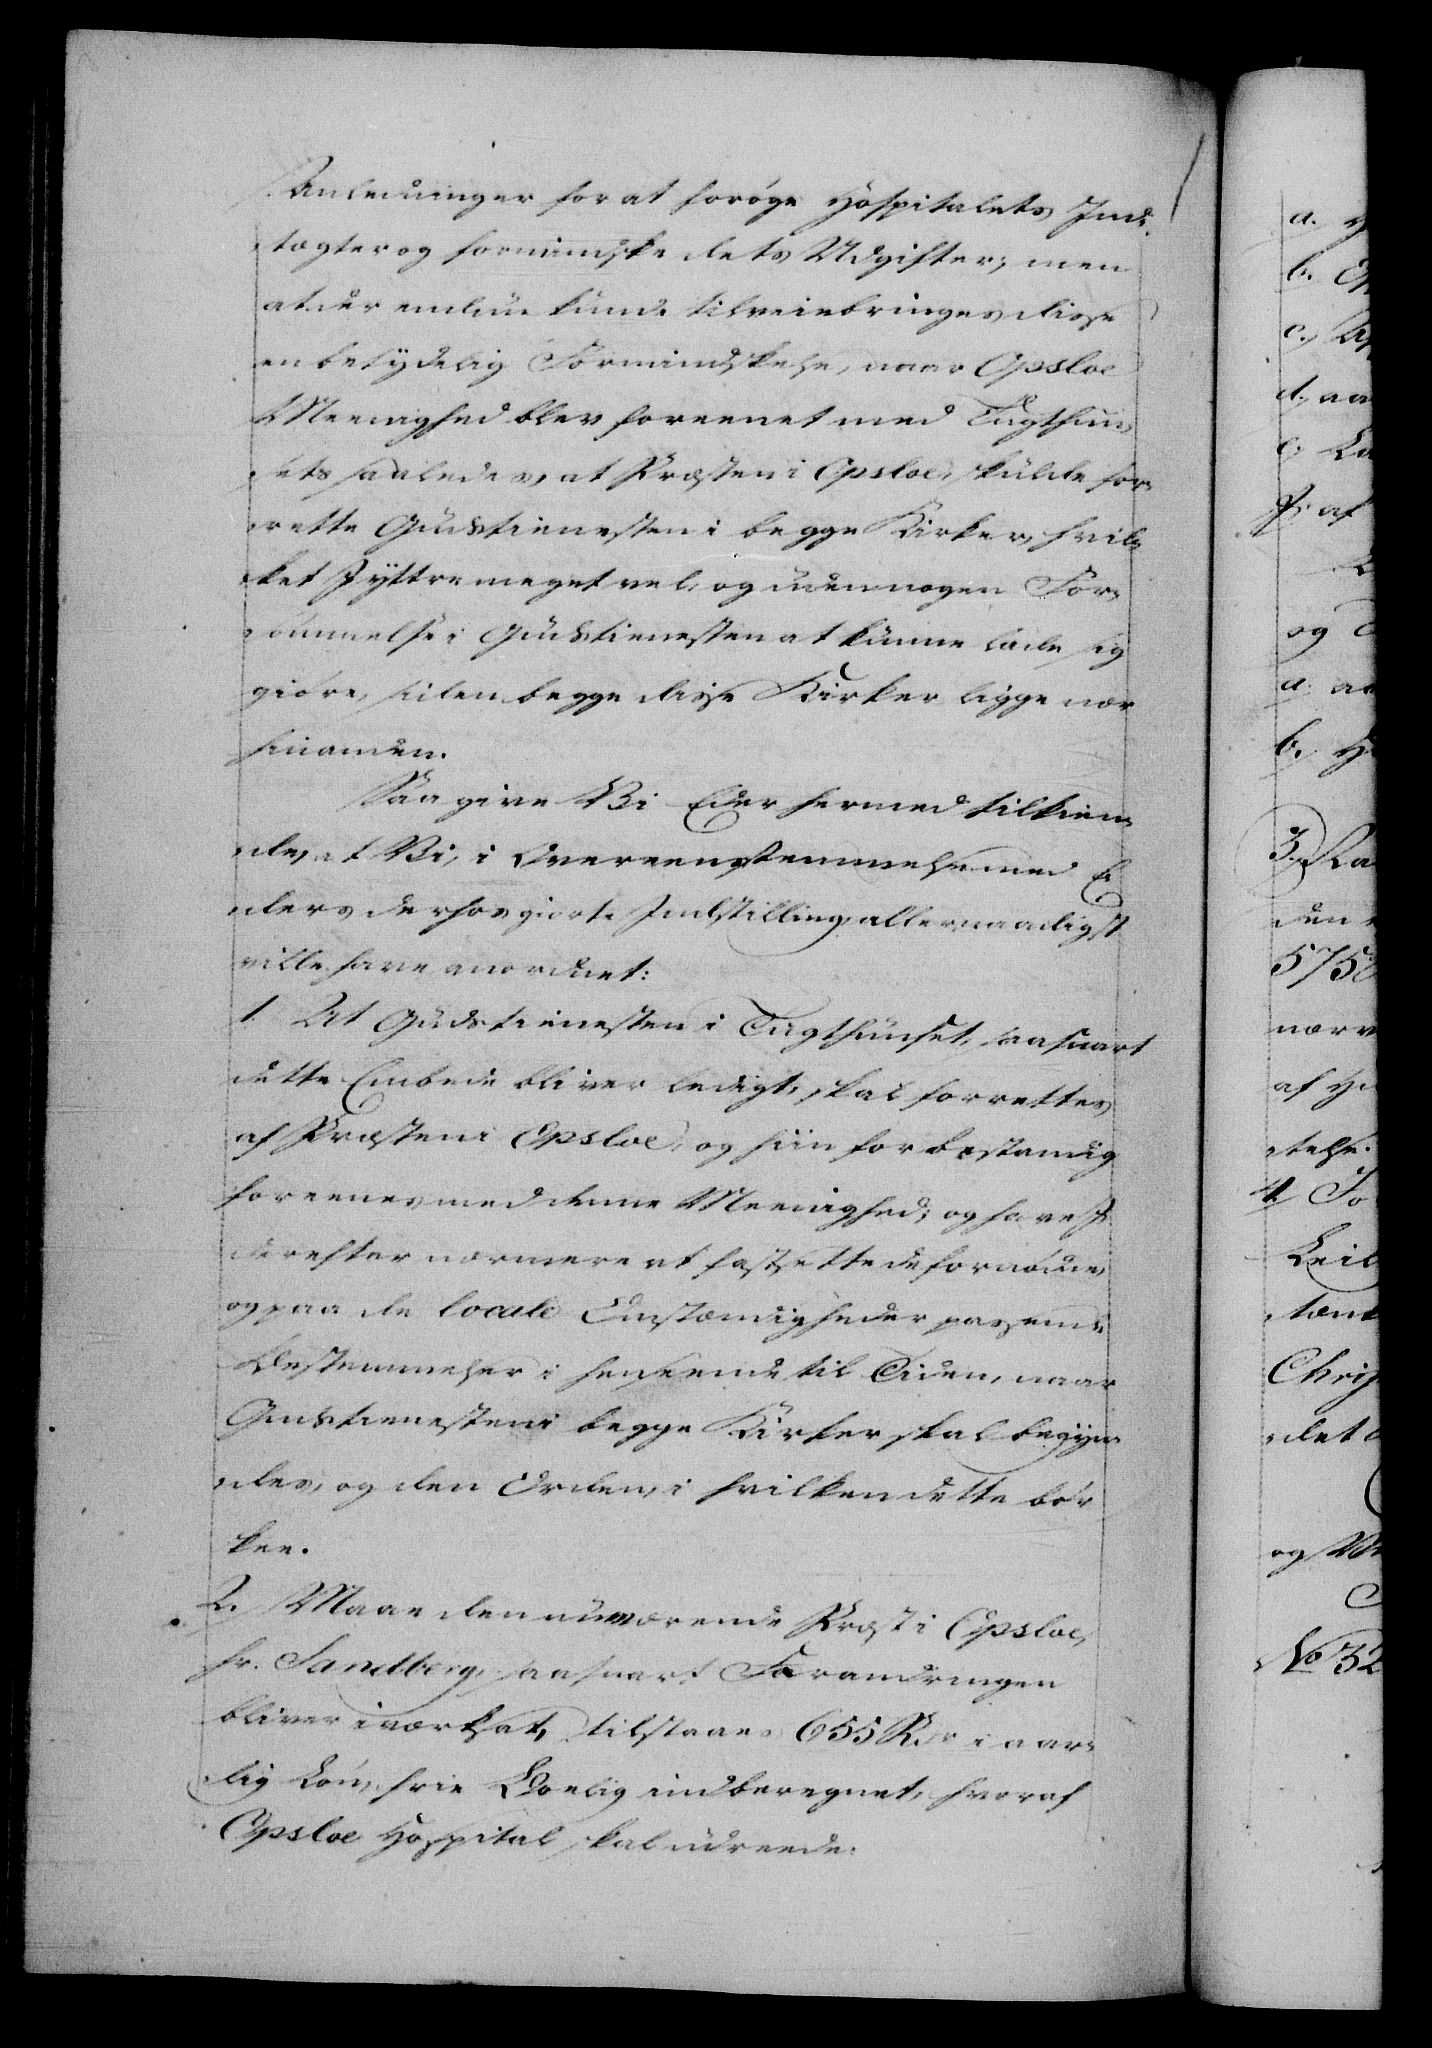 Anledninger for at forøge Hospitalets Ind-
tægter og formindske dets Udgifter; men
at der endnu kunde tilveiebringes disse
en betydelig Formindskelse, naar Opsloe
Meenighed blev foreenet med Tugthu-
sets saaledes, at Præsten i Opsloe skulde for-
rette Gudstienesten i begge Kirker, hvil-
ket I yttre meget vel, og uden nogen For-
sømmelse i Gudstienesten at kunne lade sig
giøre, siden begge disse Kirker ligge nær
hinanden.
Saa give Vi Eder hermed tilkien-
de, at Vi, i Overeensstemmelse med E-
ders derhos giorte Indstilling, allernaadigst
ville have anordnet:
1. At Gudstienesten i Tugthuset, saasnart
dette Embede bliver ledigt, skal forrettes
af Præsten i Opsloe, og siin for bestandig
foreenes med denne Meenighed; og have I
derefter nærmere at fastsætte de fornødne,
og paa de locale Omstændigheder passende
Bestemmelser i henseende til Tiden, naar
Gudstienesten i begge Kirker skal begyn-
des, og den Orden, i hvilken dette bør
skee.
2. Maae den nuværende Præst i Opsloe,
Hr. Sandberg, saasnart Forandringen
bliver iværksat, tilstaaes 655 Rdr i aar-
lig Løn, frie Boelig indberegnet, hvoraf
Opsloe Hospital skal udreede:
a.
b.
c.
d. aa
e.
f. af
og
a.
b.
3.
den
575
nærv
af
telse.
4.
Leil
tænk
Chri
det
og
No 32